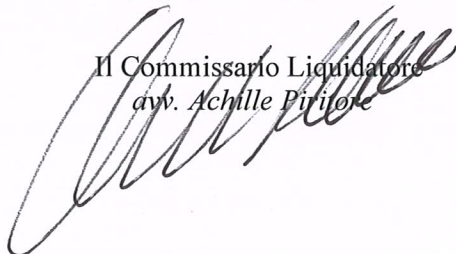 Il Commissario Liquidatore
avv. Achille Piritore